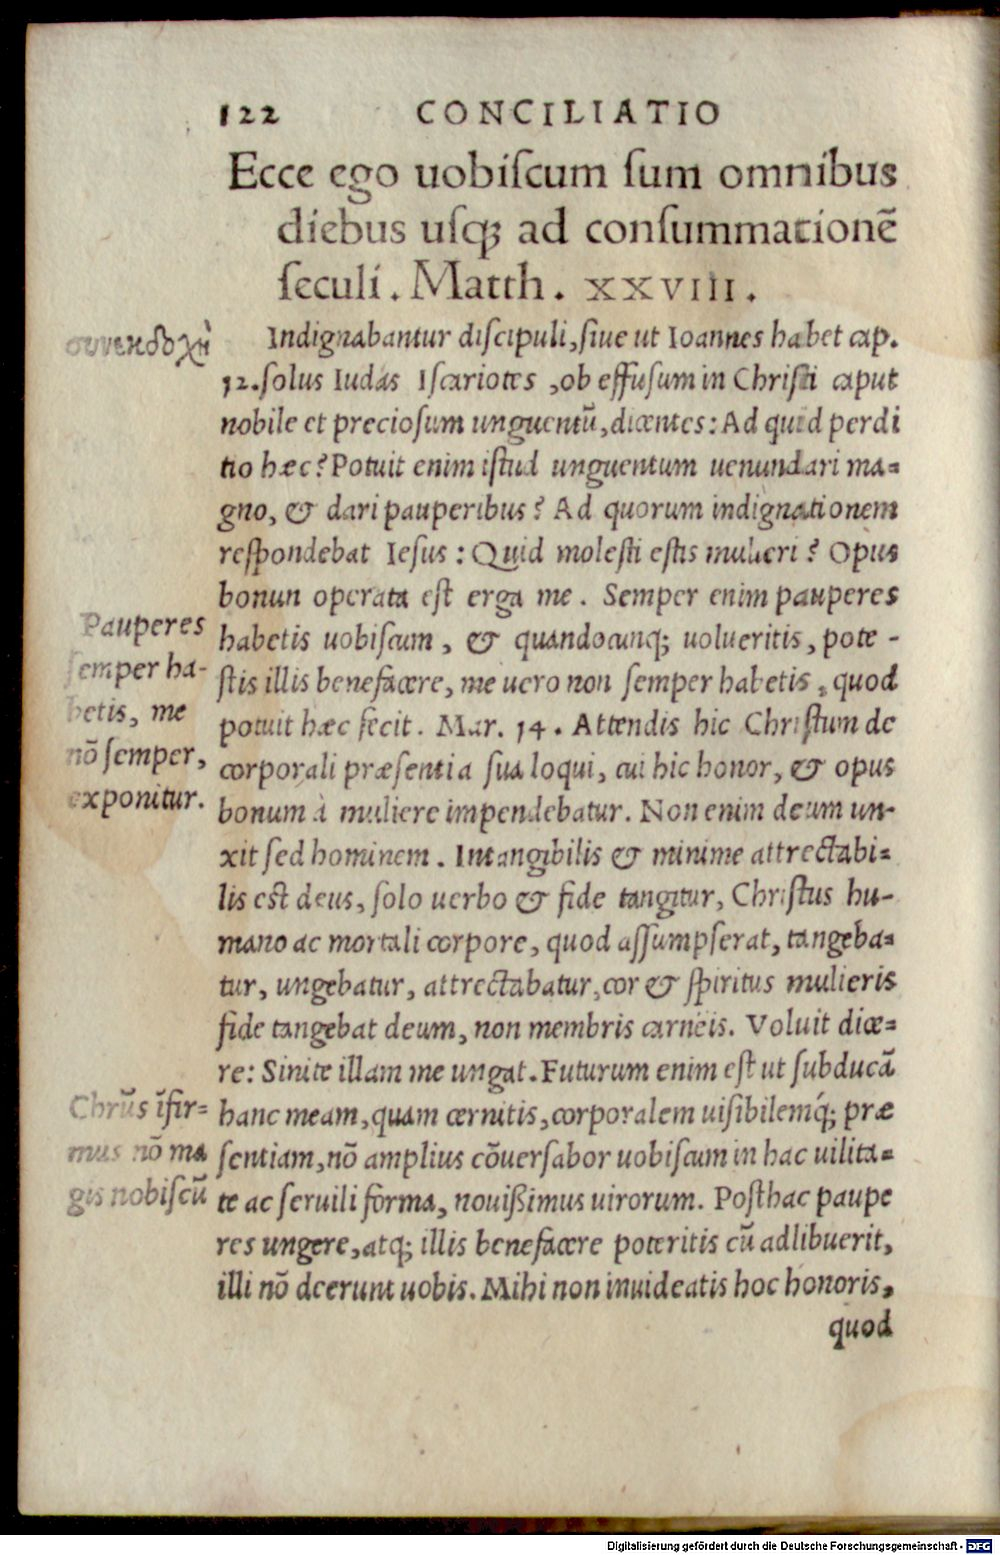 122 CONCILIATIO
Ecce ego uobiſcum ſum omnibus
diebus uſq; ad conſummationē
ſeculi. Matth. XXVIII.
συνεκδοχὴ
Indignabantur diſcipuli, ſiue ut Ioannes habet cap.
12. ſolus Iudas Iſcariotes, ob effuſum in Chriſti caput
nobile et precioſum unguentū, dicentes: Ad quid perdi
tio hæc? Potuit enim iſtud unguentum uenundari ma=
gno, & dari pauperibus? Ad quorum indignationem
reſpondebat Ieſus: Quid moleſti eſtis mulieri? Opus
bonun operata eſt erga me. Semper enim pauperes
Pauperes
ſemper ha-
betis, me
nō ſemper,
exponitur.
habetis uobiſcum, & quandocunq; uolueritis, pote-
ſtis illis benefacere, me uero non ſemper habetis, quod
potuit hæc fecit. Mar. 14. Attendis hic Chriſtum de
corporali præſentia ſua loqui, cui hic honor, & opus
bonum à muliere impendebatur. Non enim deum un-
xit ſed hominem. Intangibilis & minime attrectabi=
lis eſt deus, ſolo uerbo & fide tangitur, Chriſtus hu-
mano ac mortali corpore, quod aſſumpſerat, tangeba=
tur, ungebatur, attrectabatur, cor & ſpiritus mulieris
fide tangebat deum, non membris carneis. Voluit dice=
re: Sinite illam me ungat. Futurum enim eſt ut ſubducā
Chrūs īfir=
mus nō ma
gis nobiſcū
hanc meam, quam cernitis, corporalem uiſibilemq́; præ
ſentiam, nō amplius cōuerſabor uobiſcum in hac uilita=
te ac ſeruili forma, nouißimus uirorum. Poſthac paupe
res ungere, atq; illis benefacere poteritis cū adlibuerit,
illi nō deerunt uobis. Mihi non inuideatis hoc honoris,
quod
Digitalisierung gefördert durch die Deutsche Forschungsgemeinschaft - DFG